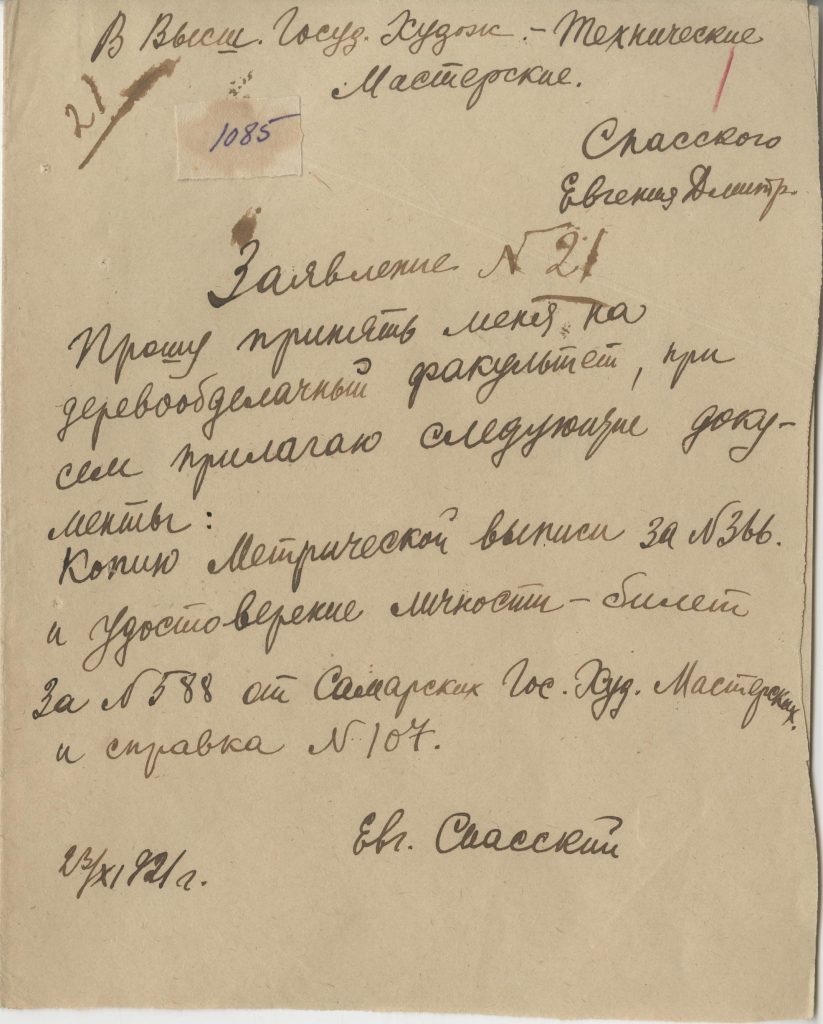 В Высш. Госуд. Худож. - Технические
Мастерские.
21
1085
Спасского
Евгения Дмитр.
Заявление № 21
Прошу принять меня на
деревообделачный факультет, при
сем прилагаю следующие доку-
менты:
Копию Метрической выписи за №366.
и удостоверение личности - билет
за №588 от Самарских Гос. Худ. Мастерских.
и справка №107.
Евг. Спасский
23/XI 921 г.